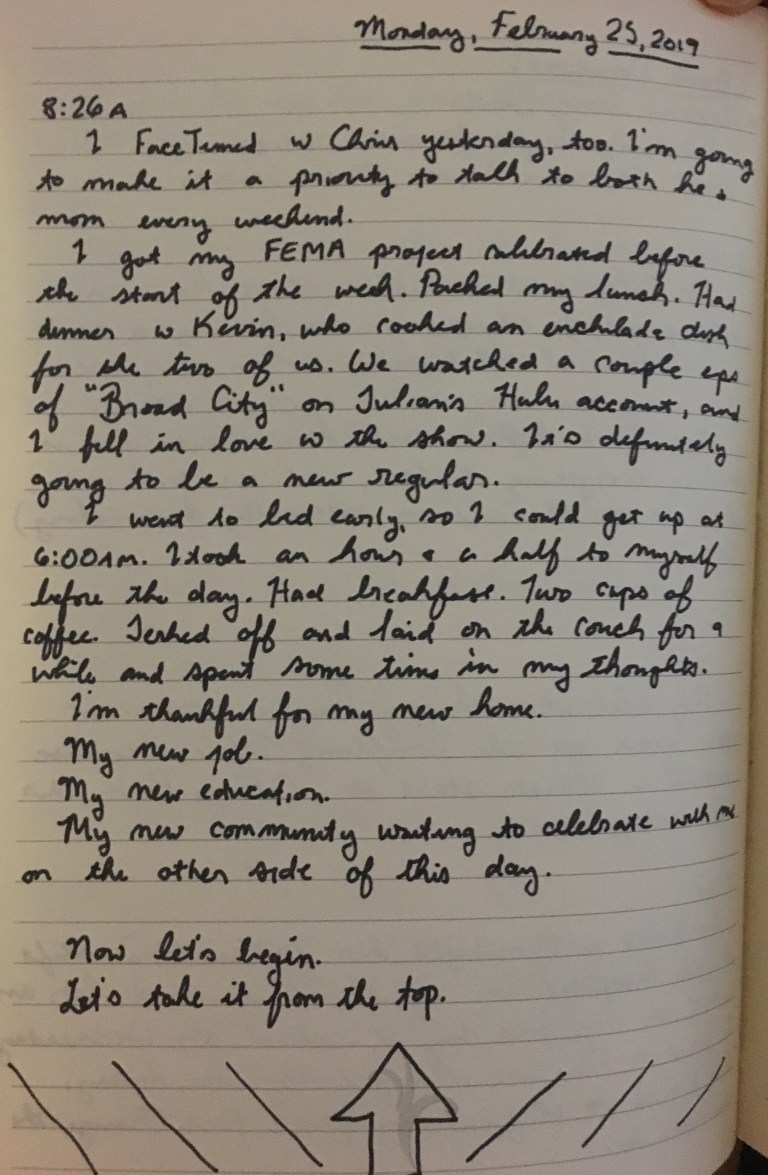 Monday, February 25, 2019
8:26A
I FaceTimed w Chris yesterday, too. I'm going
to make it a priority to talk to both he &
mom every weekend.
I got my FEMA project calibrated before
the start of the week. Packed my lunch. Had
dinner w Kevin, who cooked an enchilada dish
for the two of us. We watched a couple eps
of "Broad City" on Julian's Hulu account, and
I fell in love w the show. It's definitely
going to be a new regular.
I went to bed early, so I could get up at
6:00AM. I took an hour & a half to myself
before the day. Had breakfast. Two cups of
coffee. Jerked off and laid on the couch for a
while and spent some time in my thoughts.
I'm thankful for my new home.
My new job.
My new education.
My new community waiting to celebrate with me
on the other side of this day.
Now let's begin.
Let's take it from the top.